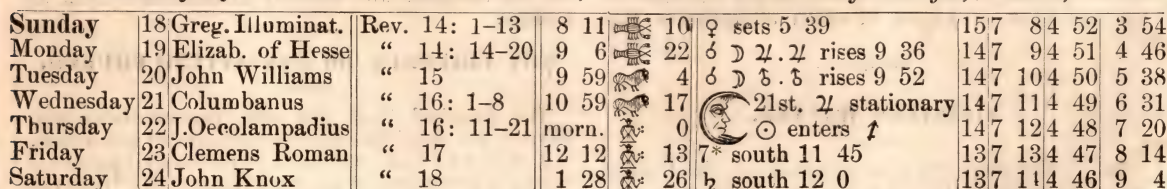 Sunday 18 Greg. Illuminat. Rev. 14: 1-13 8 11 10 ♀ sets 5 39 15 7 8 4 52 3 54
Monday 19 Elizab. of Hesse “ 14: 14-20 9 6 22 ☌ ☽ ♃. ♃ rises 9 36 14 7 9 4 51 4 46
Tuesday 20 John Williams “ 15 9 59 4 ☌ ☽ ♁. ♁ rises 9 52 14 7 10 4 50 5 38
Wednesday 21 Columbanus “ 16: 1-8 10 59 17 21st. ♃ stationary 14 7 11 4 49 6 31
Thursday 22 J.Oecolampadius “ 16: 11-21 morn. 0 ☉ enters ♐ 14 7 12 4 48 7 20
Friday 23 Clemens Roman “ 17 12 12 13 7* south 11 45 13 7 13 4 47 8 14
Saturday 24 John Knox “ 18 1 28 26 ♄ south 12 0 13 7 14 4 46 9 4